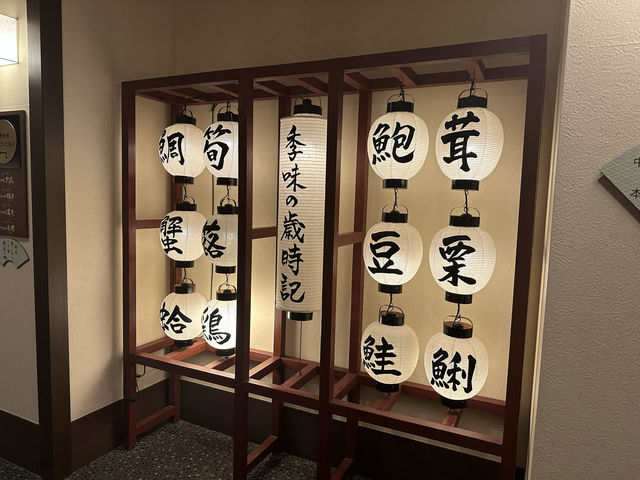 季味の歳時記
鯛
筍
蟹
蛤
鶏
鮑
茸
豆
栗
鮭
鯏